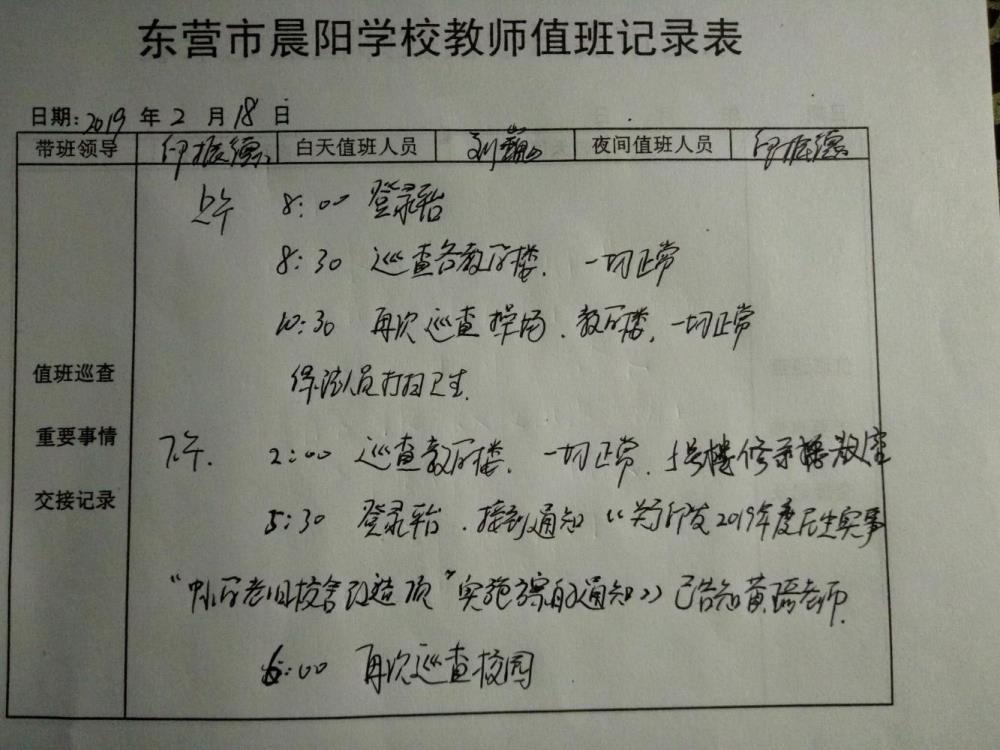 东营市晨阳学校教师值班记录表
日期: 2019 年 2 月 18 日
带班领导 印振德 白天值班人员 刘巍 夜间值班人员 印振德
上午 8:00 登录平台
8:30 巡查各教学楼. 一切正常
10:30 再次巡查操场、教学楼, 一切正常
值班巡查 保洁人员打扫卫生.
重要事情 下午. 2:00 巡查教学楼. 一切正常. 号楼修
交接记录 5:30 登录平台. 接到通知《关于印发2019年度民生实事
"中小学老旧校舍改造项"实施方案的通知》已告知黄老师.
6:00 再次巡查校园